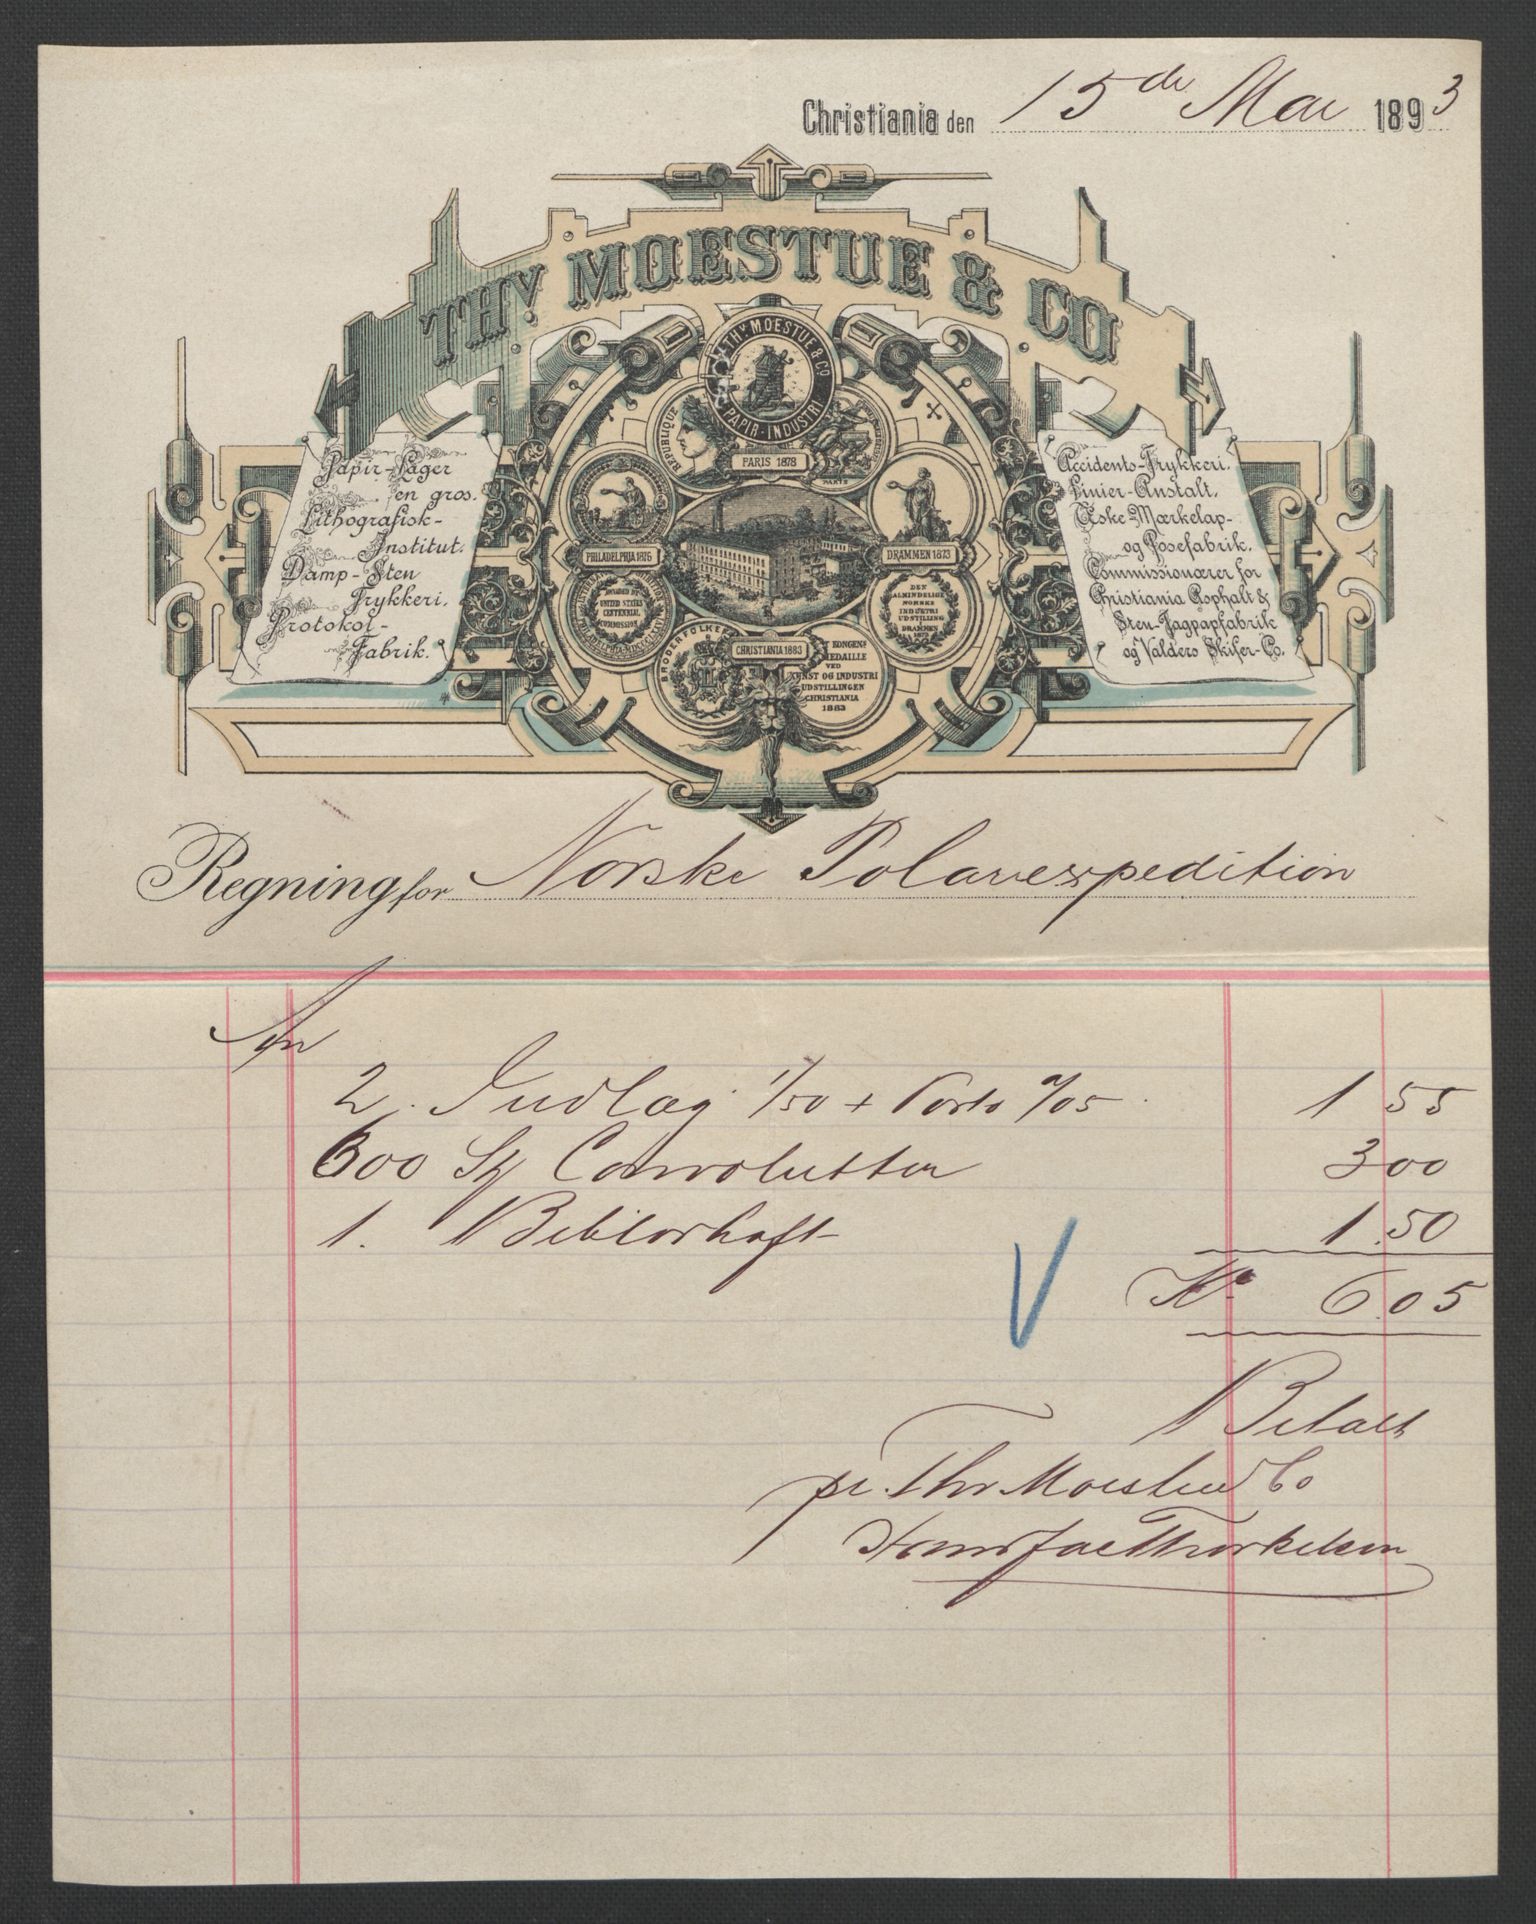 Christiania den 15de Mai 1893
THV MOESTUE & CO
THV MOESTUE & CO
PAPIR-INDUSTRI
RÉPUBLIQUE
PARIS 1878
PARIS
PHILADELPHIA 1876
DRAMMEN 1873
AWARDED BY
UNITED STATES
CENTENNIAL
COMMISSION
DEN
ALMINDELIGE
NORSKE
INDUSTRI
UDSTILLING
I
DRAMMEN
1873
BRODERFOLKE
CHRISTIANIA 1883
KONGENS
MEDAILLE
VED
KUNST OG INDUSTRI
UDSTILLINGEN
CHRISTIANIA
1883
Papir-Lager
en gros.
Lithografisk-
Institut.
Damp-Sten
Trykkeri.
Protokol-
Fabrik.
Accidents-Trykkeri.
Linier-Anstalt.
Æske-Mærkelap-
og Posefabrik.
Commissionærer for
Christiania Asphalt &
Sten-Tagpapfabrik
og Valders Skifer-Co.
Regning for Norske Polarexpedition
2. Indlæg 1/50 + Porto "/05 1 55
600 St Convolutter 3 00
1. 1.50
Kr 6.05
Betalt
pr. Thv Moestue & Co
Thorkelsen